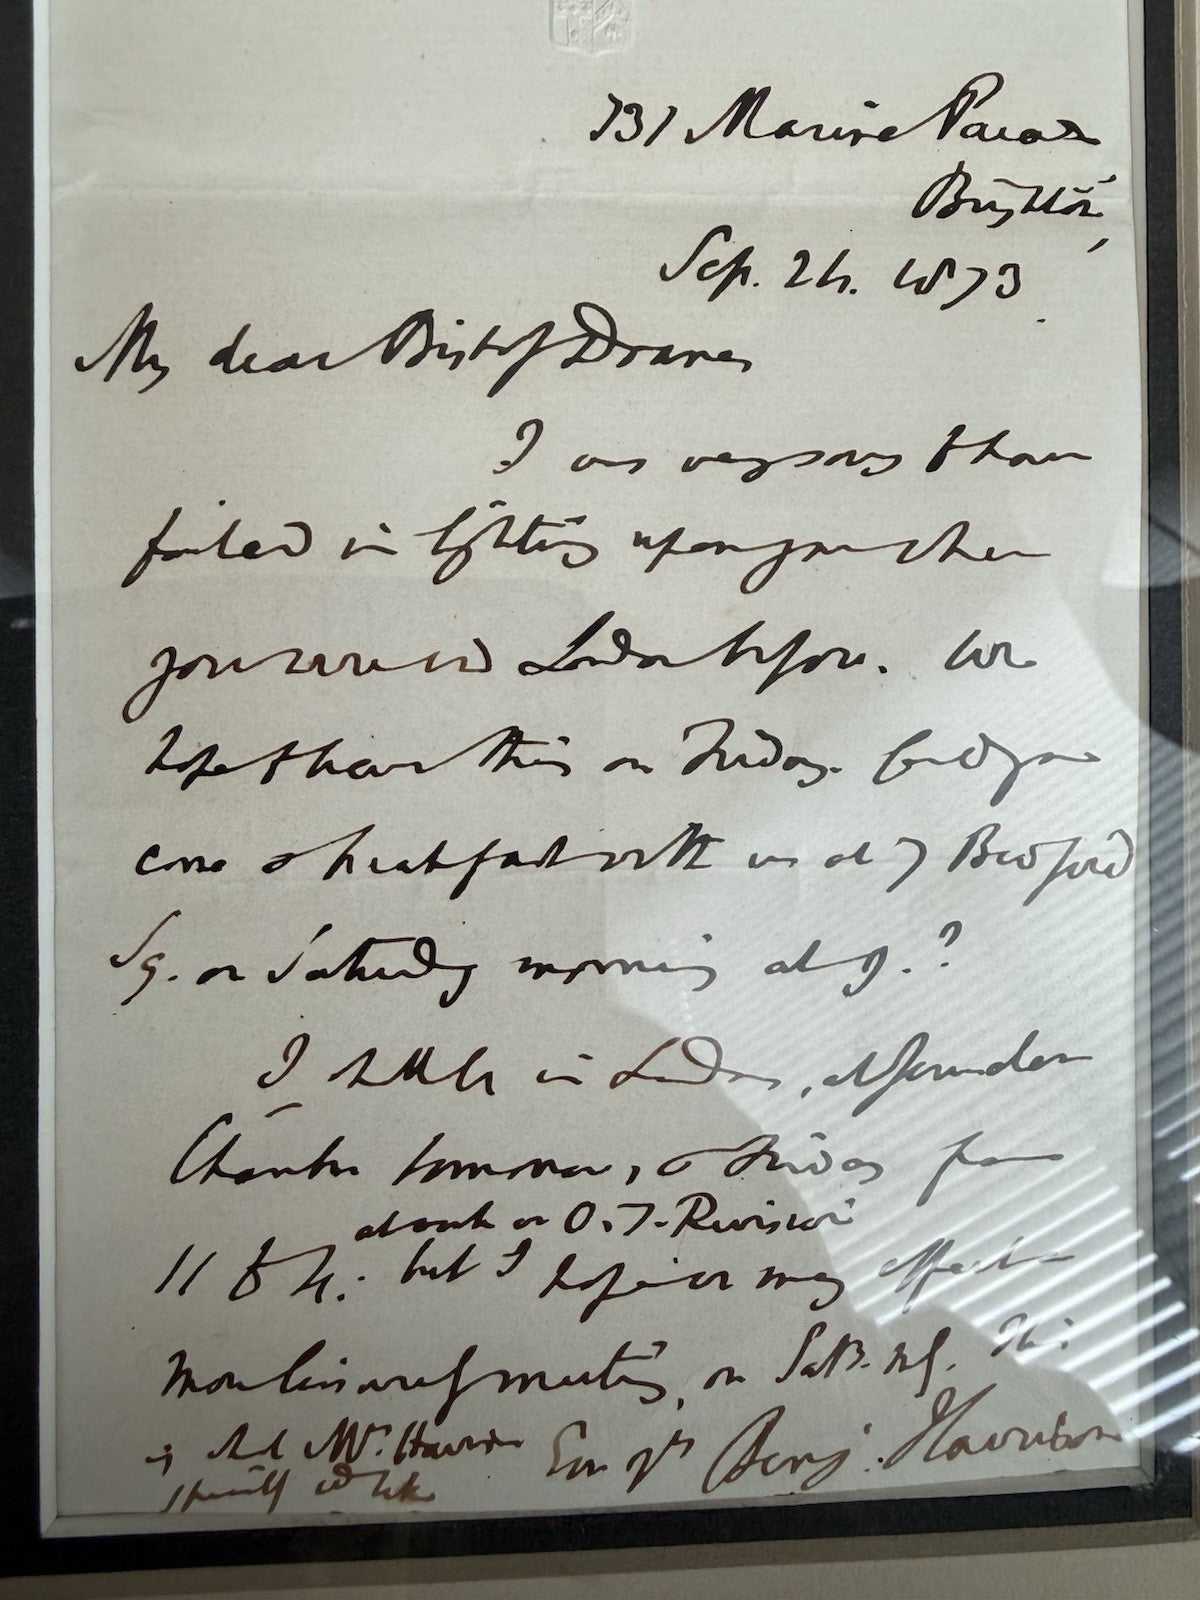 131 Marine Parade
Brighton,
Sep. 24. 1873.
My dear Bishop
I was very sorry to have
failed in lighting upon you when
you were in London before. We
hope to have this on Friday. Could you
come & breakfast with us at 7 Bedford
Sq. on Saturday morning at 9.?
I shall be in London, at Jerusalem
Chamber tomorrow, & Friday from
at work on O.T. Revision
11 to 4. but I hope we may effect a
more leisurely meeting, on Satd. mg. This
is what Mrs. Harrison
specially wd. like
Ever yrs Benj. Harrison